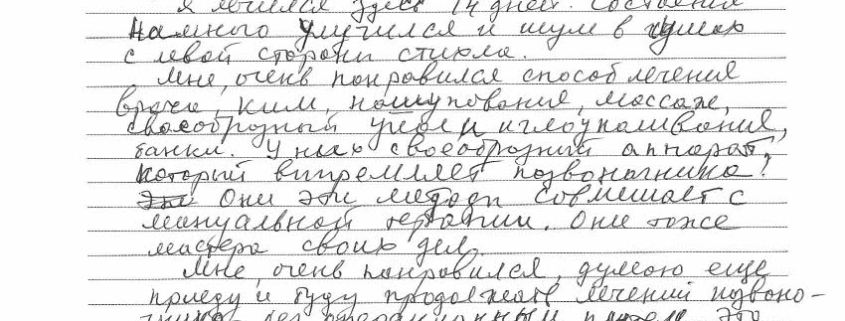 я лечился здесь 14 дней. Состояния
намного улучился и шум в ушах
с левой стороны стихла.
Мне, очень понравился способ лечения
врача, Ким, нащупования, массаж,
своеобразный укол и иглоукаливания,
банки. У них своеобразний аппарат,
который випремляет позвоночника.
Они эти методи совмешает с
мануальной терапии. Они тоже
мастера своих дел.
Мне, очень понравился, думаю еще
приеду и буду продолжать лечений позвоно-